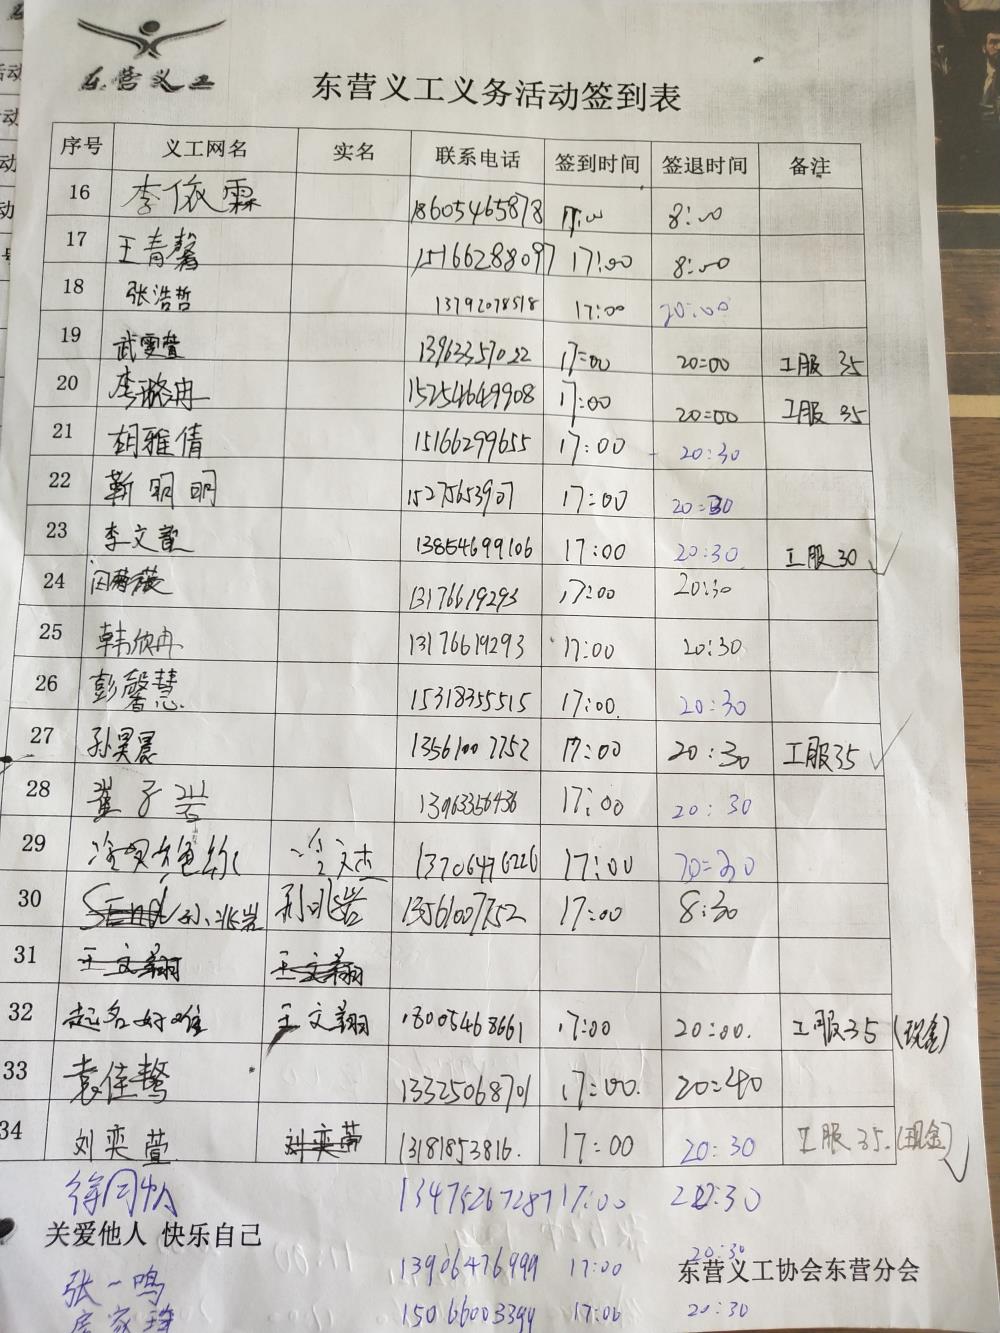 东营义工
东营义工义务活动签到表
序号 义工网名 实名 联系电话 签到时间 签退时间 备注
16 李依霖 18605465878 17:00 8:00
17 王青馨 15166288097 17:00 8:00
18 张浩哲 13792078518 17:00 20:00
19 武雯萱 13963357022 17:00 20:00 工服 35
20 李璐冉 15254649908 17:00 20:00 工服 35
21 胡雅倩 15166299655 17:00 20:30
22 靳明明 15275653907 17:00 20:30
23 李文 13854699106 17:00 20:30 工服30
24 闫薇 13176619293 17:00 20:30
25 韩欣冉 13176619293 17:00 20:30
26 彭馨慧 15318355515 17:00 20:30
27 孙昊晨 13561007752 17:00 20:30 工服35
28 崔子 13963356436 17:00 20:30
29 冷 文杰 13706476226 17:00 20:30
30 孙兆岩 孙兆岩 13561007752 17:00 8:30
31 王文翔 王文翔
32 起名好难 王文翔 18005468661 17:00 20:00. 工服35 (现金)
33 袁佳 13325068701 17:00. 20:40
34 刘奕萱 刘奕萱 13181853816. 17:00 20:30 工服 35.(现金)
徐同帆 13475267287 17:00 20:30
关爱他人 快乐自己
张一鸣 13906476999 17:00 20:30
东营义工协会东营分会
15066003399 17:00 20:30